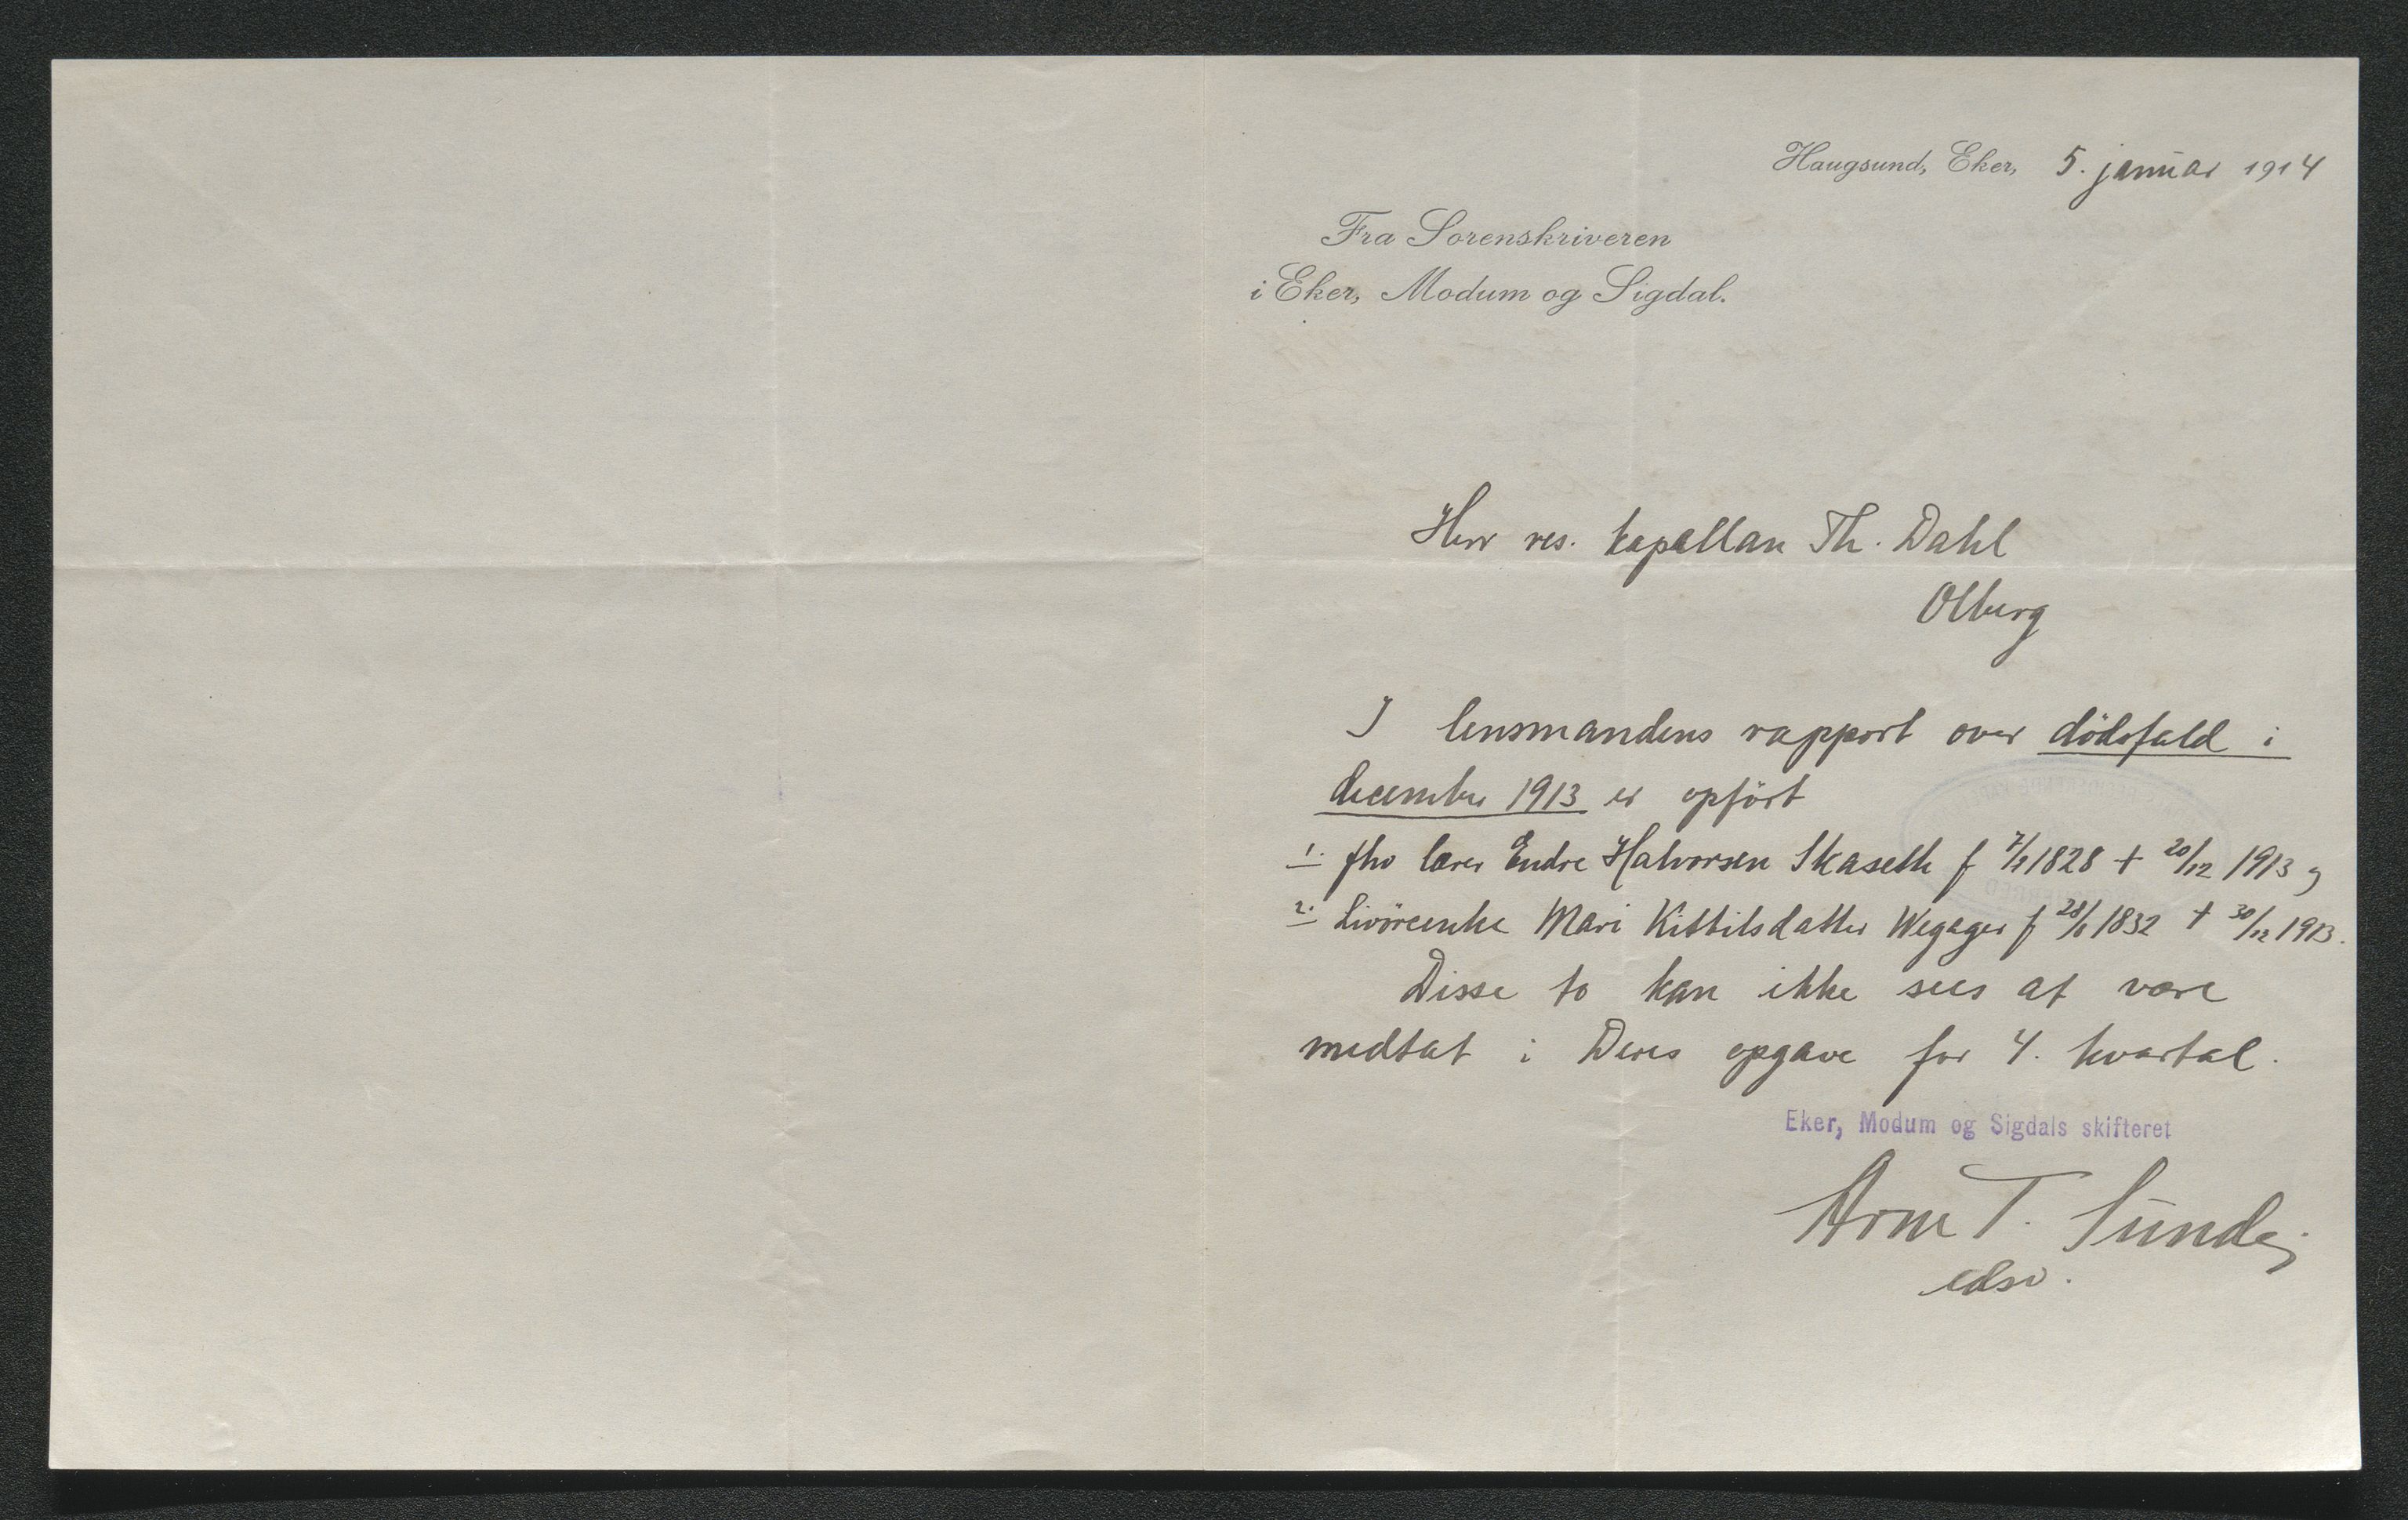 Haugsund, Eker, 5. januar 1914
Fra Sorenskriveren
i Eker, Modum og Sigdal.
Herr res. kapellan Th. Dahl
Olberg
I lensmandens rapport over dödsfald i
december 1913 er opfört
1. fhv lærer Endre Halvorsen Skaseth f 1828 + 20/12 1913 og
2. Livöreenke Mari Kittilsdatter Wegager f 28/6 1832 + 30/12 1913.
Disse to kan ikke sees at være
medtat i Deres opgave for 4. kvartal.
Eker, Modum og Sigdals skifteret
Arne T. Sunde
edsv.